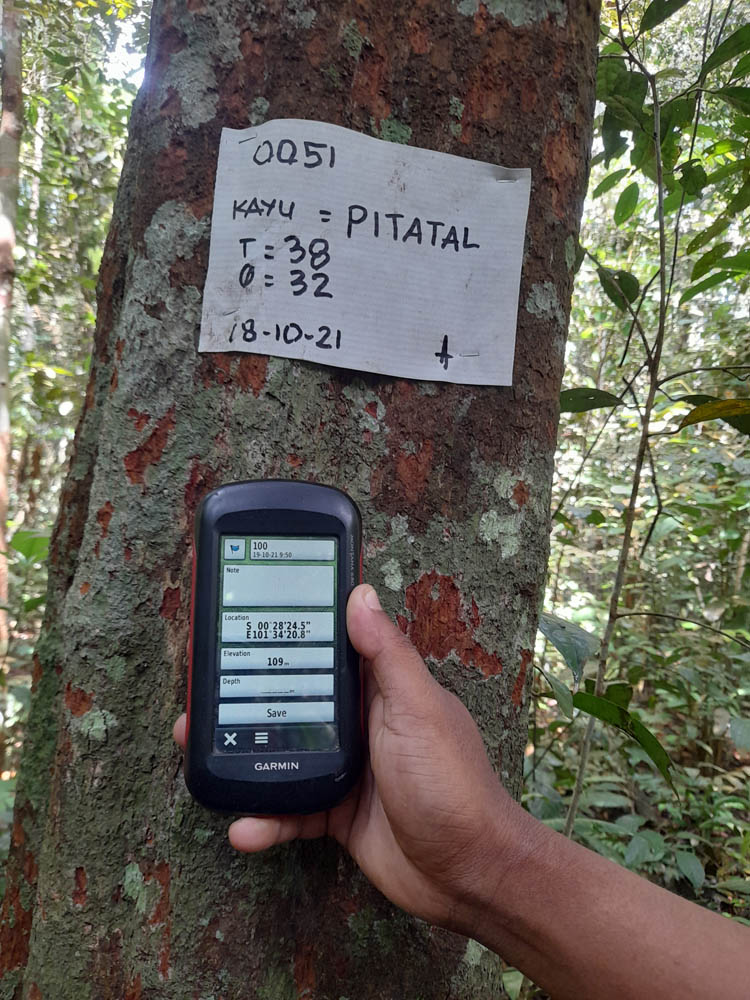 0051
KAYU = PITATAL
T = 38
Ø = 32
18-10-21
100
19-10-21 9:50
Note
Location
S 00°28'24.5"
E101°34'20.8"
Elevation
109 m
Depth
_____m
Save
GARMIN